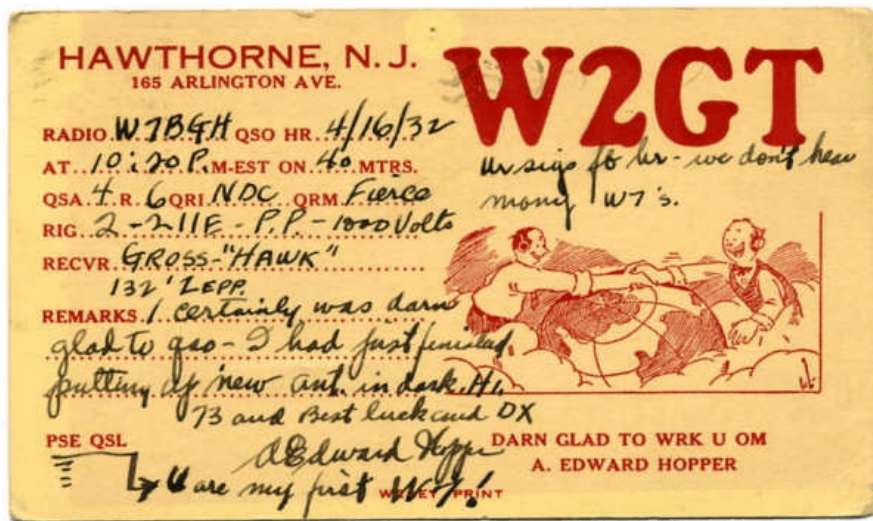 HAWTHORNE, N. J.
165 ARLINGTON AVE.
W2GT
RADIO W7BGH QSO HR 4/16/32
AT 10:20 P. M-EST ON 40 MTRS.
QSA 4 R 6 QRI NDC QRM Fierce
RIG 2-211E - P.P - 1000 Volts
RECVR GROSS-"HAWK"
132' ZEPP.
REMARKS I certainly was darn
glad to qso - I had just finished
putting up new ant. in dark. HI.
73 and Best luck and DX
A Edward Hopper
ur sigs fb hr - we don't hear
many W7's.
PSE QSL
U are my first W7!
DARN GLAD TO WRK U OM
A. EDWARD HOPPER
PRINT